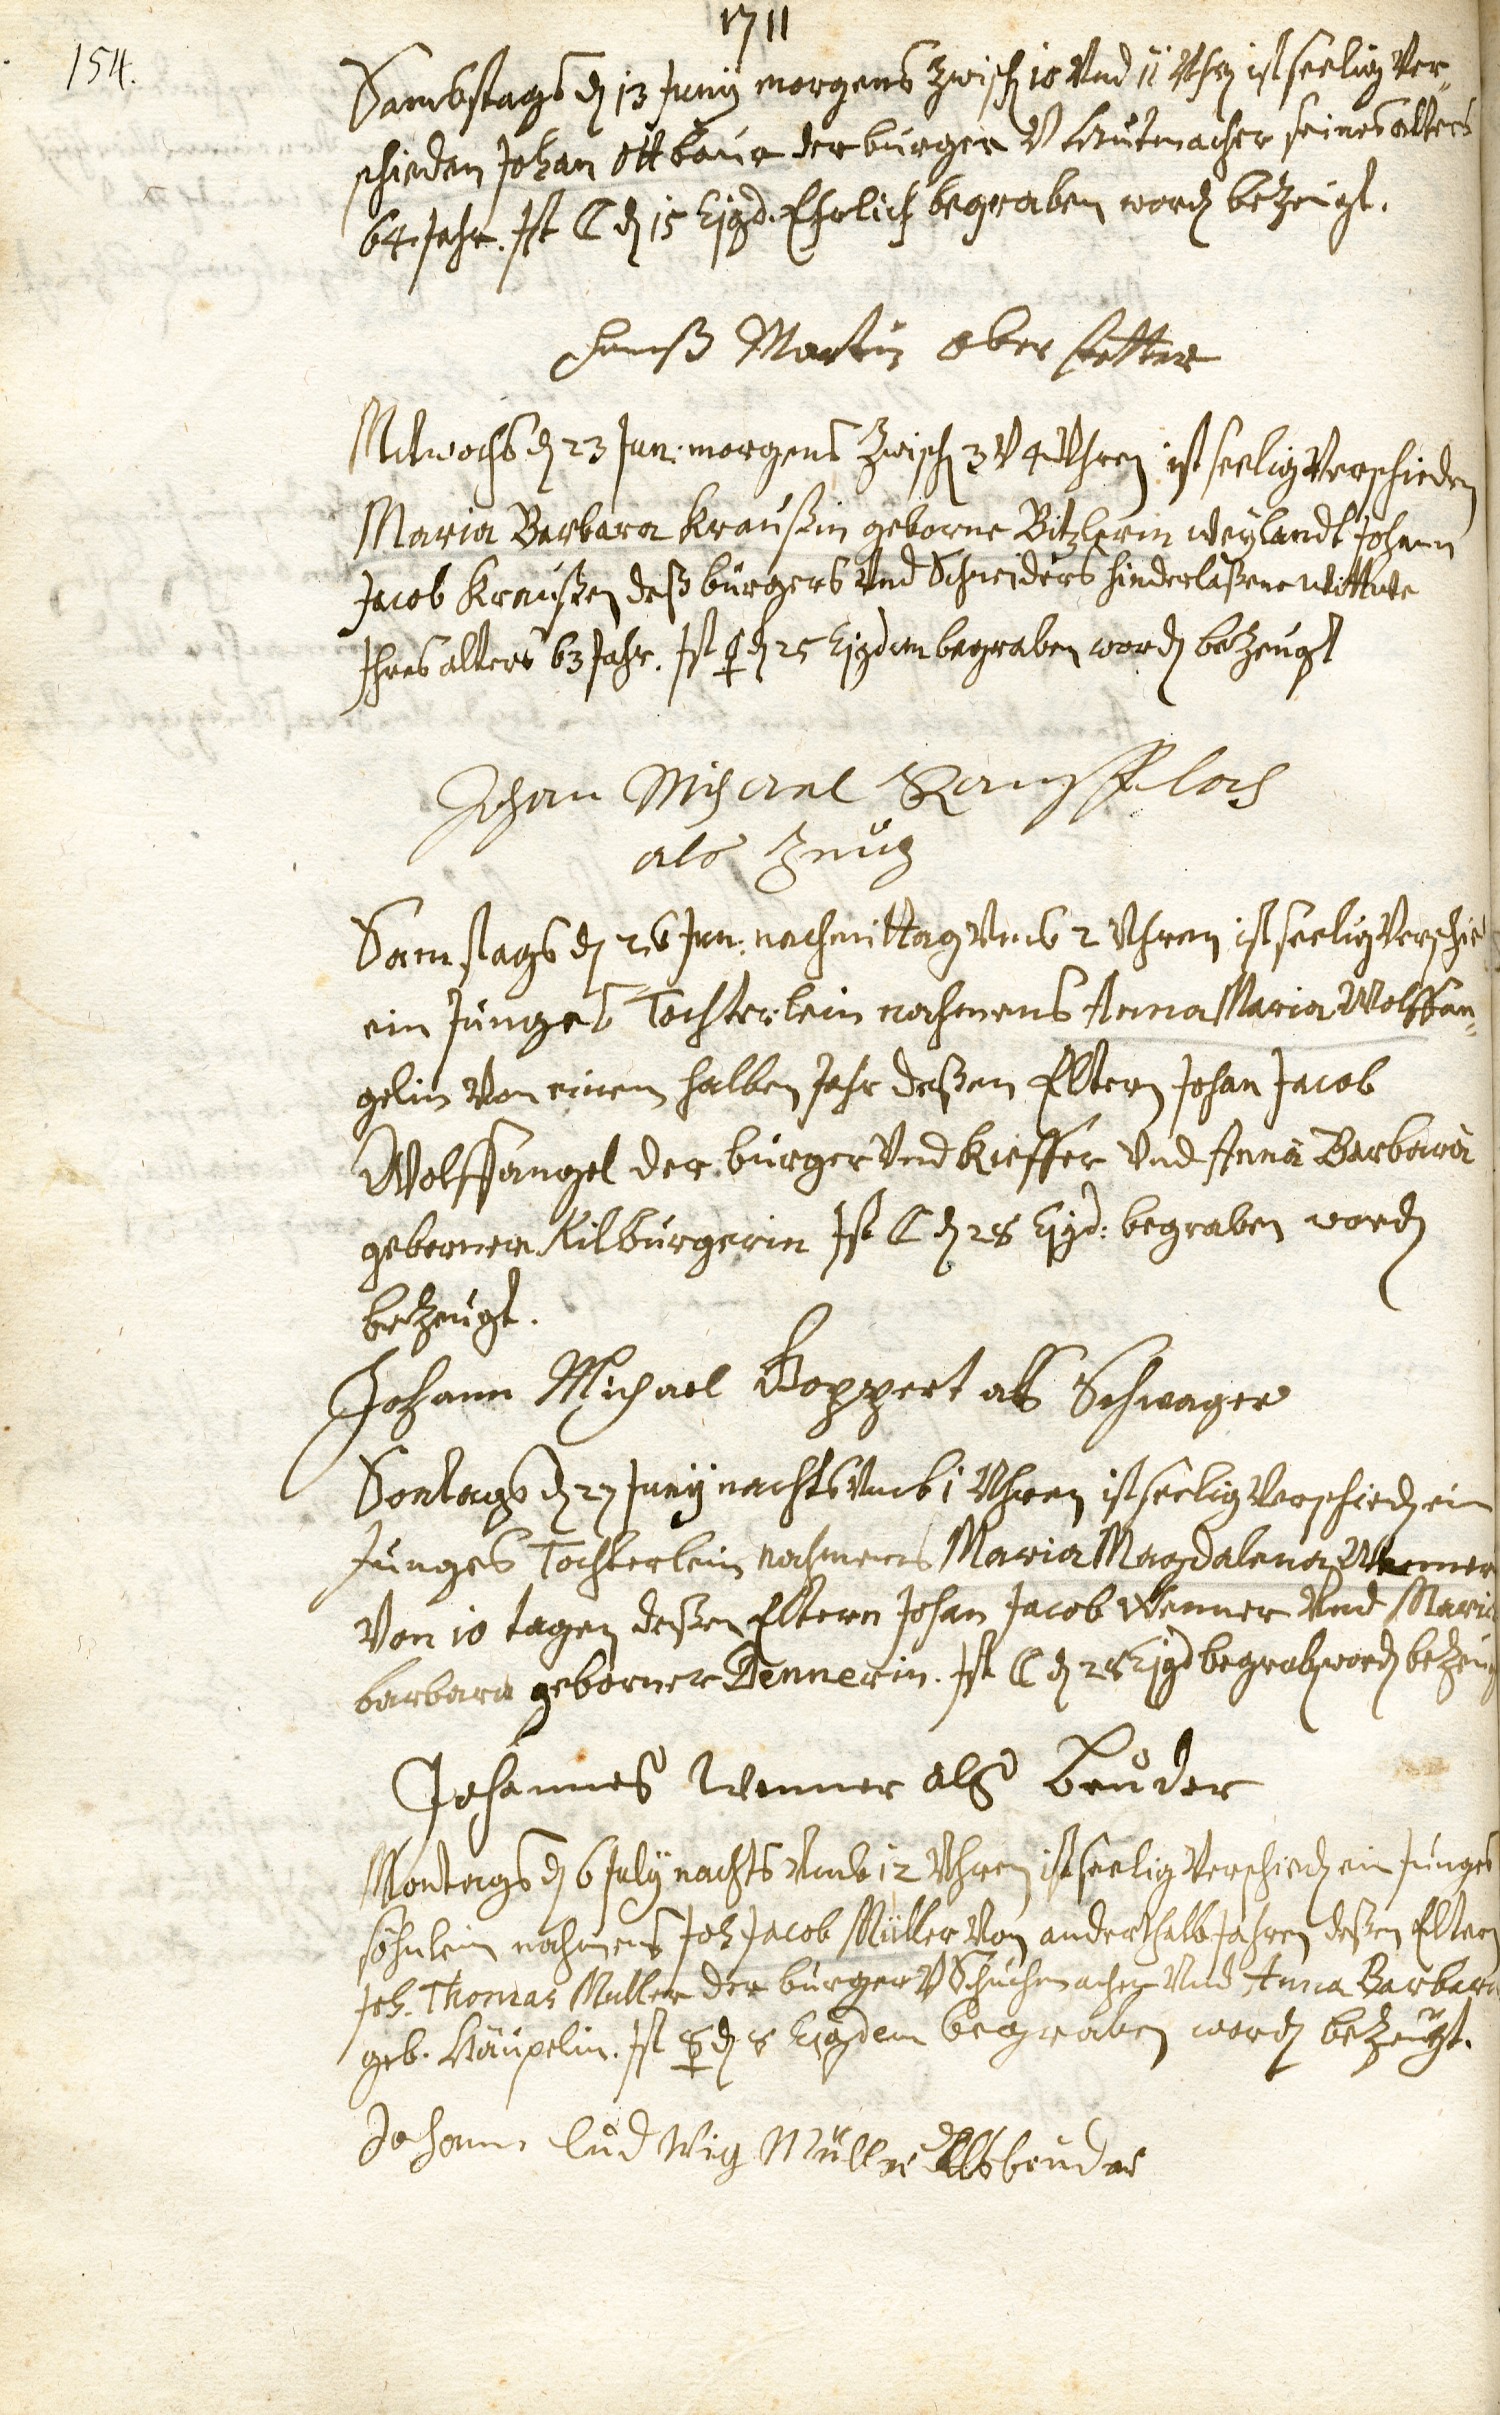 1711
154.
Sambstags dē 13 Junij morgens zwischē 10 Vnd 11 Vhrē ist seelig Ver-
schieden Johan Ott baur der burger V Hutmacher seines alters
64 Jahr. Ist ☾ dē 15 Ejgd. Ehrlich begraben wordē bezeugt.
Hanß Martin ober
Mitwochs dē 23 Jun: morgens zwischē 3 V 4 Vhren ist seelig Verschieden
Maria Barbara Kraußin geborne Bitzlerin weylandt Johann
Jacob Kraußen deß burgers Vnd Schneiders hinderlaßene Wittwe
Ihres alters 63 Jahr. Ist ♀ dē 25 Ejgdem begraben wordē bezeugt
Johan Michael
als Zeug
Samstags dē 26 Jun: nachmittag Vmb 2 Vhren ist seelig Verschied
ein Junges Töchterlein nahmens Anna Maria Wolffan-
gelin Von einem halben Jahr deßen Eltern Johan Jacob
Wolffangel der burger Vnd Kieffer Vnd Anna Barbara
geborner Kilburgerin Ist ☾ dē 28 Ejgd: begraben wordē
bezeugt.
Johann Michael Boppert alß Schwager
Sontags dē 27 Junij nachts Vmb 1 Vhren ist seelig Verschiedē ein
Junges Töchterlein nahmens Maria Magdalena Wenner
Von 10 tagen deßen Eltern Johan Jacob Wenner Vnd Maria
barbara geborner Dennerin. Ist ☾ dē 28 Ejgd begrabē wordē bezeug
Johannes Wenner alß bruder
Montags dē 6 Julij nachts Vmb 12 Vhren ist seelig Verschiedē ein Junges
söhnlein nahmens Joh Jacob Müller Von anderthalb Jahren deßen Eltern
Joh. Thomas Müller der burger V Schuhmacher Vnd Anna Barbara
geb. Häupelin. Ist ☿ dē 8 Ejgdem begraben wordē bezeugt.
Johann ludwig Müller Alß bruder